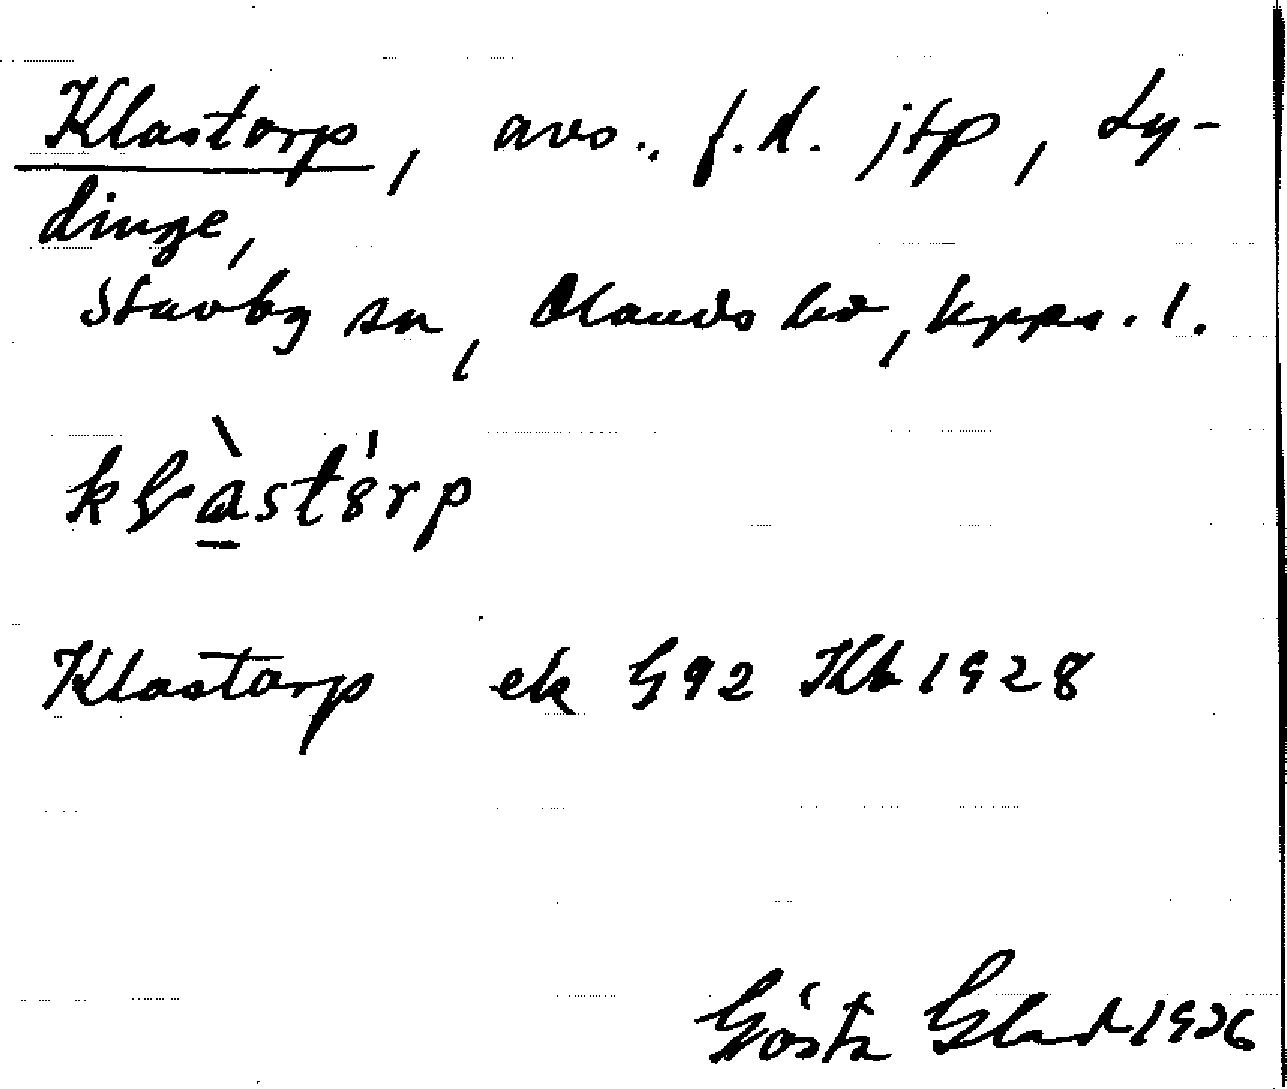 Klastorp, avs., f.d. jtp, Ly-
dinge,
Stavby sn, Olands hd, Upps. l.
Klastorp ek G92 Kb 1928
Gösta Glad 1936